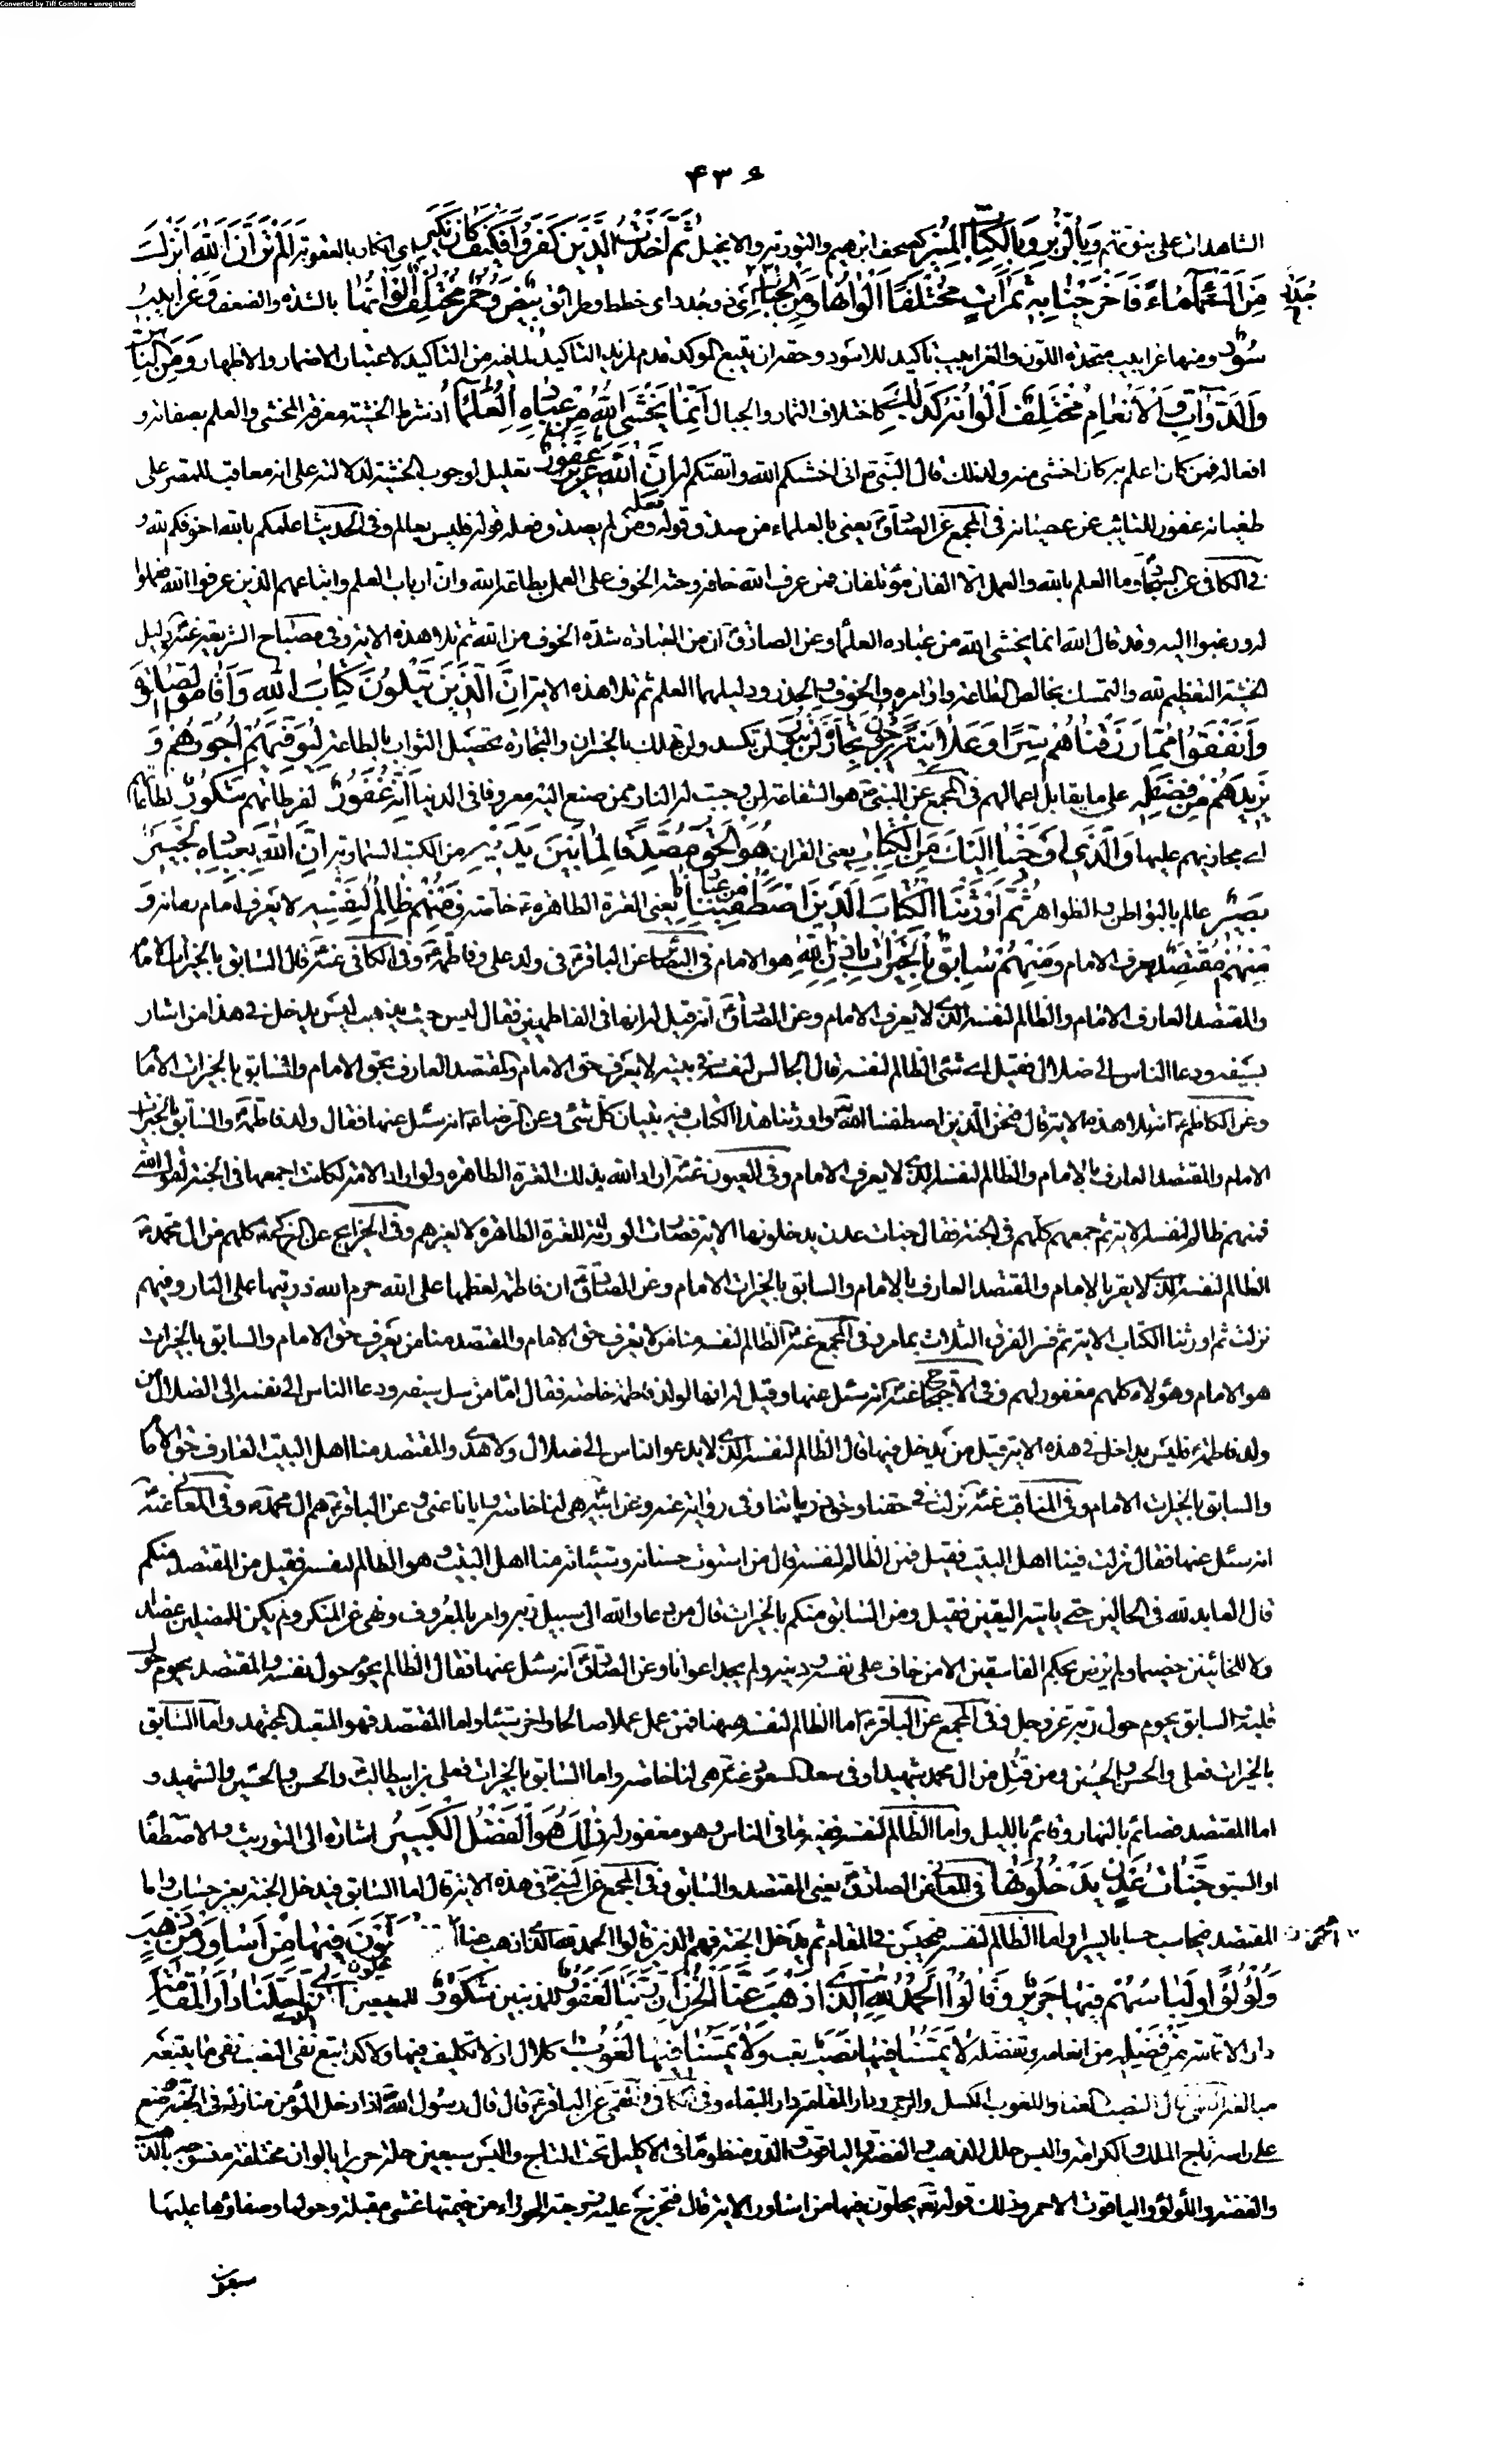 Converted by Tiff Combine - unregistered
۴۳۶
الشاهدات على نبوتهم وَبِالزُّبُرِ وَبِالْكِتَابِ الْمُنِيرِ كصحف ابرهيم والتورية والانجيل ثُمَّ أَخَذْتُ الَّذِينَ كَفَرُوا فَكَيْفَ كَانَ نَكِيرِ اى انكارى بالعقوبة أَلَمْ تَرَ أَنَّ اللّٰهَ أَنْزَلَ
مِنَ السَّمَاءِ مَاءً فَأَخْرَجْنَا بِهِ ثَمَرَاتٍ مُخْتَلِفًا أَلْوَانُهَا وَمِنَ الْجِبَالِ جُدَدٌ اى ذو جدد اى خطط وطرائق بِيضٌ وَحُمْرٌ مُخْتَلِفٌ أَلْوَانُهَا بالشدة والضعف وَغَرَابِيبُ
سُودٌ ومنها غرابيب متحدة اللون والغرابيب تاكيد للاسود وحقه ان يتبع المؤكد قدم لمزيد التاكيد لما فيه من التاكيد لاعتبار الاضمار والاظهار وَمِنَ النَّاسِ
وَالدَّوَابِّ وَالْأَنْعَامِ مُخْتَلِفٌ أَلْوَانُهُ كَذَلِكَ كاختلاف الثمار والجبال إِنَّمَا يَخْشَى اللّٰهَ مِنْ عِبَادِهِ الْعُلَمَاءُ اذ شرط الخشية معرفة المخشى والعلم بصفاته و
افعاله فمن كان اعلم به كان اخشى منه ولذلك قال النبى ص انى اخشيكم الله واتقيكم له إِنَّ اللّٰهَ عَزِيزٌ غَفُورٌ تعليل لوجوب الخشية لدلالته على انه معاقب للمصر على
طغيانه غفور للتائب عن عصيانه فى المجمع عن الصادق ع يعنى بالعلماء من صدق قوله فعله ومن لم يصدق فعله قوله فليس بعالم وفى الحديث اعلمكم بالله اخوفكم لله و
فى الكافى عن السجاد ع وما العلم بالله والعمل الا الفان مؤتلفان فمن عرف الله خافه وحثه الخوف على العمل بطاعة الله وان ارباب العلم واتباعهم الذين عرفوا الله فعملوا
له ورغبوا اليه وقد قال الله انما يخشى الله من عباده العلماء وعن الصادق ع ان من العبادة شدة الخوف من الله ثم تلا هذه الاية وفى مصباح الشريعة عنه ع دليل
الخشية التعظيم لله والتمسك بخالص الطاعة واوامره والخوف والحذر ودليلهما العلم ثم تلا هذه الاية إِنَّ الَّذِينَ يَتْلُونَ كِتَابَ اللّٰهِ وَأَقَامُوا الصَّلٰوةَ
وَأَنْفَقُوا مِمَّا رَزَقْنَاهُمْ سِرًّا وَعَلَانِيَةً يَرْجُونَ تِجَارَةً لَنْ تَبُورَ لن تكسد ولن تهلك بالخسران والتجارة تحصيل الثواب بالطاعة لِيُوَفِّيَهُمْ أُجُورَهُمْ وَ
يَزِيدَهُمْ مِنْ فَضْلِهِ على ما يقابل اعمالهم فى المجمع عن النبى ص هو الشفاعة لمن وجبت له النار ممن صنع اليه معروفا فى الدنيا إِنَّهُ غَفُورٌ لفرطاتهم شَكُورٌ لطاعاتهم
اى مجازيهم عليها وَالَّذِي أَوْحَيْنَا إِلَيْكَ مِنَ الْكِتَابِ يعنى القران هُوَ الْحَقُّ مُصَدِّقًا لِمَا بَيْنَ يَدَيْهِ من الكتب السماوية إِنَّ اللّٰهَ بِعِبَادِهِ لَخَبِيرٌ
بَصِيرٌ عالم بالبواطن والظواهر ثُمَّ أَوْرَثْنَا الْكِتَابَ الَّذِينَ اصْطَفَيْنَا مِنْ عِبَادِنَا يعنى العترة الطاهرة ع خاصة فَمِنْهُمْ ظَالِمٌ لِنَفْسِهِ لا يعرف امام زمانه وَ
مِنْهُمْ مُقْتَصِدٌ يعرف الامام وَمِنْهُمْ سَابِقٌ بِالْخَيْرَاتِ بِإِذْنِ اللّٰهِ هو الامام فى البصائر عن الباقر ع هى فى ولد على وفاطمة ع وفى الكافى عنه ع قال السابق بالخيرات الامام
والمقتصد العارف للامام والظالم لنفسه الذى لا يعرف الامام وعن الصادق ع انه قيل له انها فى الفاطميين فقال ليس حيث تذهب ليس يدخل فى هذا من اشار
بسيفه ودعا الناس الى ضلال فقيل اى شئ الظالم لنفسه قال الجالس فى بيته لا يعرف حق الامام والمقتصد العارف بحق الامام والسابق بالخيرات الامام
وعن الكاظم ع انه تلا هذه الاية قال فنحن الذين اصطفينا الله واورثنا هذا الكتاب فيه تبيان كل شئ وعن الرضا ع انه سئل عنها فقال ولد فاطمة ع والسابق بالخيرات
الامام والمقتصد العارف بالامام والظالم لنفسه الذى لا يعرف الامام وفى العيون عنه ع اراد الله بذلك العترة الطاهرة ولو اراد الامة لكانت اجمعها فى الجنة لقول الله
فمنهم ظالم لنفسه الاية ثم جمعهم كلهم فى الجنة فقال جنات عدن يدخلونها الاية فصارت الوراثة للعترة الطاهرة لا لغيرهم وفى الخرايج عن الزكى ع كلهم من ال محمد ص
الظالم لنفسه الذى لا يقر بالامام والمقتصد العارف بالامام والسابق بالخيرات الامام وعن الصادق ع ان فاطمة لعظمها على الله حرم الله ذريتها على النار وفيهم
نزلت ثم اورثنا الكتاب الاية ثم فسر الفرق الثلاث بما مر وفى المجمع عنه ع الظالم لنفسه منا من لا يعرف حق الامام والمقتصد منا من يعرف حق الامام والسابق بالخيرات
هو الامام وهؤلاء كلهم مغفور لهم وفى الاحتجاج عنه ع انه سئل عنها وقيل له انها لولد فاطمة خاصة فقال اما من سل سيفه ودعا الناس الى نفسه الى الضلال من
ولد فاطمة ع فليس بداخل فى هذه الاية قيل من يدخل فيها قال الظالم لنفسه الذى لا يدعو الناس الى ضلال ولا هدى والمقتصد منا اهل البيت العارف حق الامام
والسابق بالخيرات الامام وفى المناقب عنه ع نزلت فى حقنا وحق ذرياتنا وفى رواية عنه وعن ابيه ع هى لنا خاصة وايانا عنى وعن الباقر ع هم ال محمد ص وفى المعانى عنه ع
انه سئل عنها فقال نزلت فينا اهل البيت فقيل فمن الظالم لنفسه قال من استوت حسناته وسيئاته منا اهل البيت فهو الظالم لنفسه فقيل من المقتصد منكم
قال العابد لله فى الحالين حتى ياتيه اليقين فقيل فمن السابق منكم بالخيرات قال من دعا والله الى سبيل ربه وامر بالمعروف ونهى عن المنكر ولم يكن للمضلين عضدا
ولا للخائنين خصيما ولم يرض بحكم الفاسقين الا من خاف على نفسه ودينه ولم يجد اعوانا وعن الصادق ع انه سئل عنها فقال الظالم يحوم حول نفسه والمقتصد يحوم حول
قلبه والسابق يحوم حول ربه عز وجل وفى المجمع عن الباقر ع اما الظالم لنفسه منا فمن عمل عملا صالحا واخر سيئا واما المقتصد فهو المتعبد المجتهد واما السابق
بالخيرات فعلى والحسن والحسين ومن قتل من ال محمد شهيدا وفى سعد السعود عنه ع هى لنا خاصة واما السابق بالخيرات فعلى بن ابيطالب والحسن والحسين والشهيد و
اما المقتصد فصائم بالنهار وقائم بالليل واما الظالم لنفسه ففيه ما فى الناس وهو مغفور له ذَلِكَ هُوَ الْفَضْلُ الْكَبِيرُ اشارة الى التوريث والاصطفاء
او السبق جَنَّاتُ عَدْنٍ يَدْخُلُونَهَا فى المعانى عن الصادق ع يعنى المقتصد والسابق وفى المجمع عن النبى ص فى هذه الاية قال اما السابق فيدخل الجنة بغير حساب واما
المقتصد فيحاسب حسابا يسيرا واما الظالم لنفسه فيحبس فى المقام ثم يدخل الجنة فهم الذين قالوا الحمد لله الذى اذهب عنا الحزن يُحَلَّوْنَ فِيهَا مِنْ أَسَاوِرَ مِنْ ذَهَبٍ
وَلُؤْلُؤًا وَلِبَاسُهُمْ فِيهَا حَرِيرٌ وَقَالُوا الْحَمْدُ لِلّٰهِ الَّذِي أَذْهَبَ عَنَّا الْحَزَنَ إِنَّ رَبَّنَا لَغَفُورٌ للمذنبين شَكُورٌ للمطيعين الَّذِي أَحَلَّنَا دَارَ الْمُقَامَةِ
دار الاقامة مِنْ فَضْلِهِ من انعامه وتفضله لَا يَمَسُّنَا فِيهَا نَصَبٌ تعب وَلَا يَمَسُّنَا فِيهَا لُغُوبٌ كلال اذ لا تكليف فيها ولا كد اتبع نفى النصب نفى ما يتبعه
مبالغة القمى قال النصب العناء واللغوب الكسل والضجر ودار المقامة دار البقاء وفى الكافى والقمى عن الباقر ع قال قال رسول الله ص اذا دخل المؤمن منازله فى الجنة وضع
على راسه تاج الملك والكرامة والبس حلل الذهب والفضة والياقوت والدر منظوما فى الاكليل تحت التاج والبس سبعين حلة حريرا بالوان مختلفة منسوجة بالذهب
والفضة واللؤلؤ والياقوت الاحمر وذلك قوله تعالى يحلون فيها من اساور الاية قال فتخرج عليه زوجته الحوراء من خيمتها تمشى مقبلة وحولها وصفاؤها عليها
سبعون